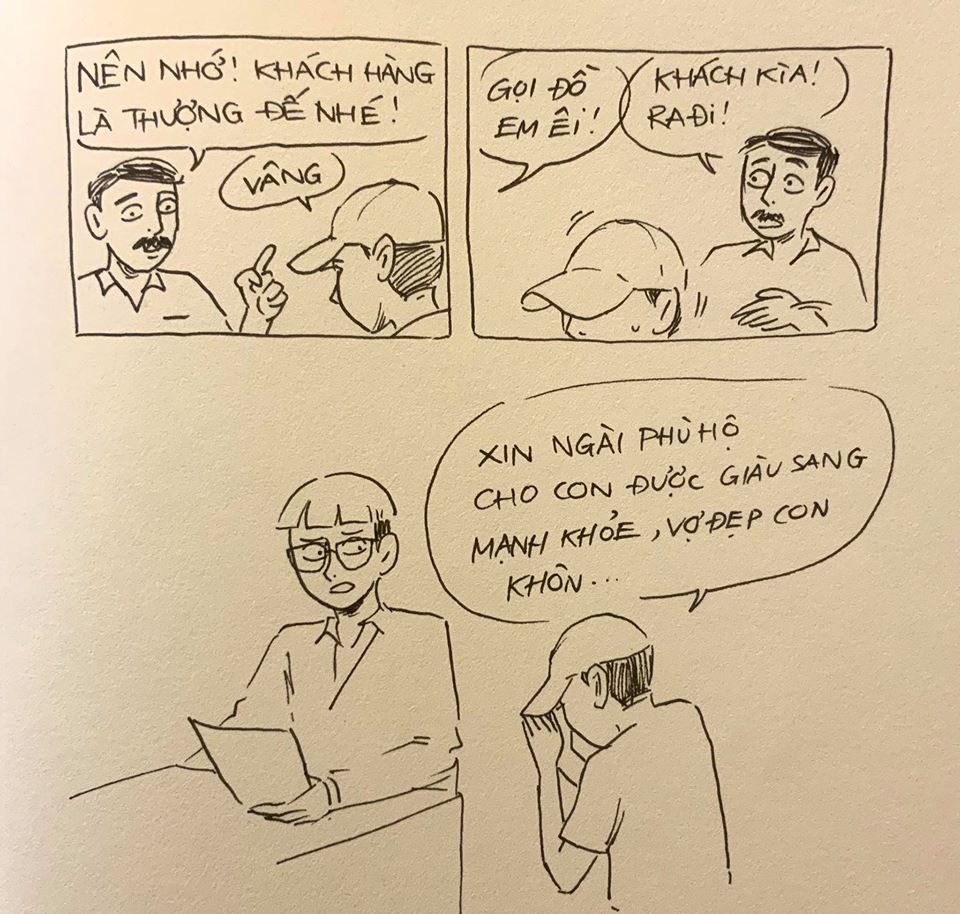 NÊN NHỚ! KHÁCH HÀNG
LÀ THƯỢNG ĐẾ NHÉ!
VÂNG
GỌI ĐỒ
EM ÊI!
KHÁCH KÌA!
RA ĐI!
XIN NGÀI PHÙ HỘ
CHO CON ĐƯỢC GIÀU SANG
MẠNH KHỎE, VỢ ĐẸP CON
KHÔN...